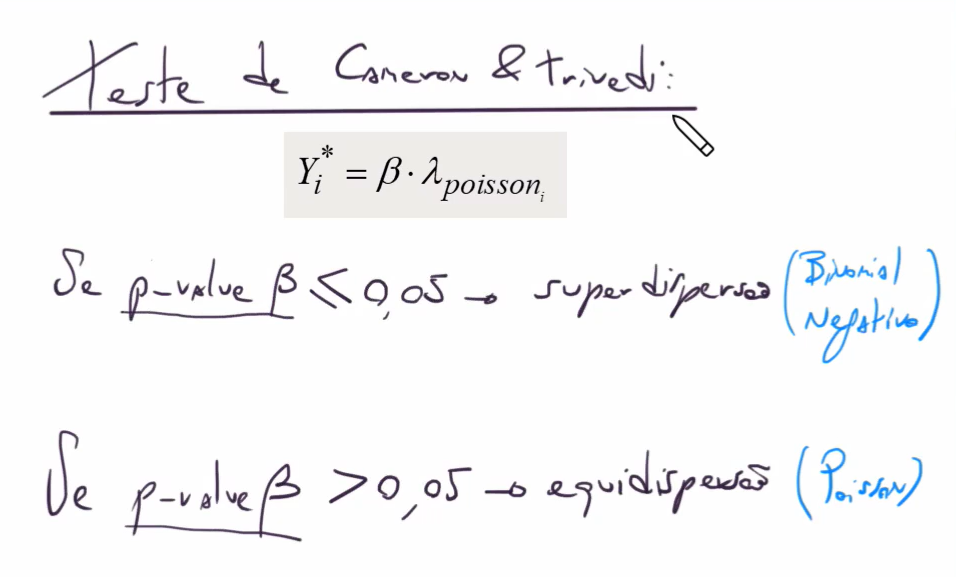 Teste de Cameron & Trivedi:
Y*i = β · λpoissoni
Se p-value β ≤ 0,05 → superdispersão (Binomial
Negativo)
Se p-value β > 0,05 → equidispersão (Poisson)